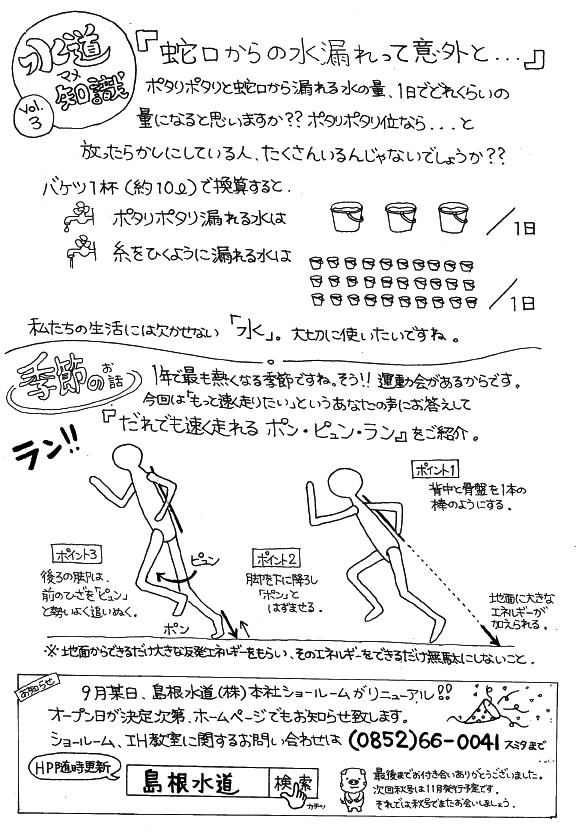 水道
マメ
知識
vol.
3
『蛇口からの水漏れって意外と...』
ポタリポタリと蛇口から漏れる水の量、1日でどれくらいの
量になると思いますか?? ポタリポタリ位なら...と
放ったらかしにしている人、たくさんいるんじゃないでしょうか??
バケツ1杯(約10ℓ)で換算すると、
ポタリポタリ漏れる水は
/1日
糸をひくように漏れる水は
/1日
私たちの生活には欠かせない「水」。大切に使いたいですね。
季節のお話
1年で最も熱くなる季節ですね。そう!! 運動会があるからです。
今回は「もっと速く走りたい」というあなたの声にお答えして
『だれでも速く走れる ポン・ピュン・ラン』をご紹介。
ラン!!
ポイント1
背中と骨盤を1本の
棒のようにする。
ポイント3
後ろの脚は、
前のひざを「ピュン」
と勢いよく追いぬく。
ピュン
ポン
ポイント2
脚を下に降ろし
「ポン」と
はずませる。
地面に大きな
エネルギーが
加えられる。
※地面からできるだけ大きな反発エネルギーをもらい、そのエネルギーをできるだけ無駄にしないこと。
お知らせ
9月某日、島根水道(株)本社ショールームがリニューアル!!
オープン日が決定次第、ホームページでもお知らせ致します。
ショールーム、IH教室に関するお問い合わせは (0852)66-0041 スミタまで
HP随時更新
島根水道
検索
カチッ
最後までお付き合いありがとうございました。
次回秋号は11月発行予定です。
それでは秋号でまたお会いしましょう。